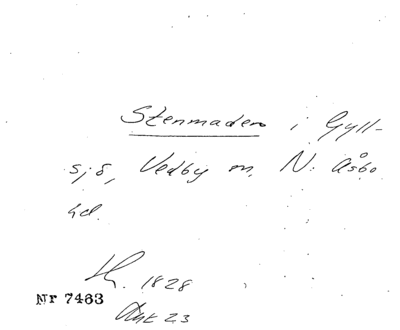 Stenmaden i Gyll-
sjö, Vedby m. N: Åsbo
hd.
1828
Nr 7463
Akt 23